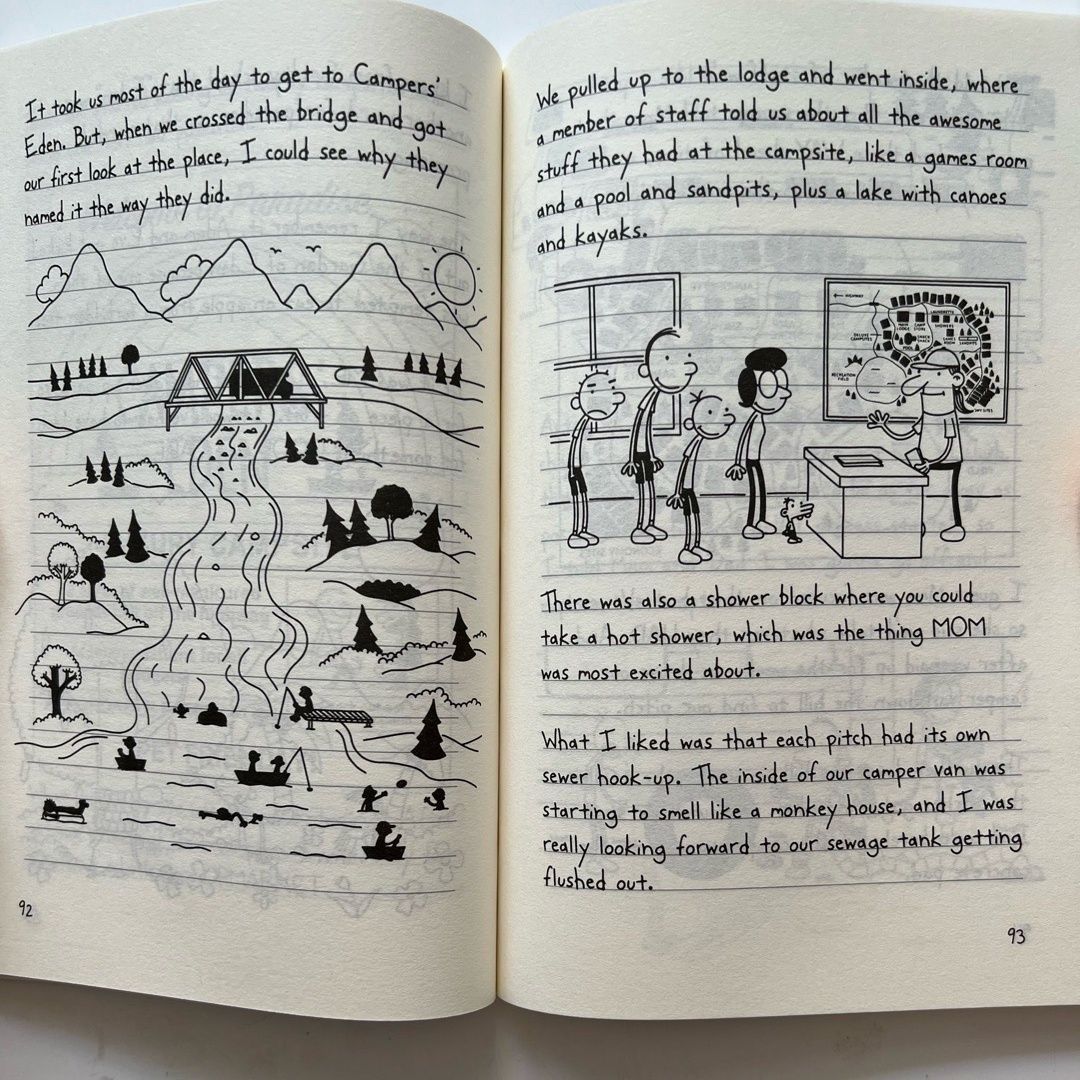 It took us most of the day to get to Campers'
Eden. But, when we crossed the bridge and got
our first look at the place, I could see why they
named it the way they did.
92
We pulled up to the lodge and went inside, where
a member of staff told us about all the awesome
stuff they had at the campsite, like a games room
and a pool and sandpits, plus a lake with canoes
and kayaks.
HIGHWAY
LAUNDRETTE
MAIN LODGE
CAMP STORE
SHOWERS
DELUXE CAMPSITES
POOL
SNACK SHACK
GAMES ROOM
SANDPITS
RECREATION FIELD
There was also a shower block where you could
take a hot shower, which was the thing MOM
was most excited about.
What I liked was that each pitch had its own
sewer hook-up. The inside of our camper van was
starting to smell like a monkey house, and I was
really looking forward to our sewage tank getting
flushed out.
93